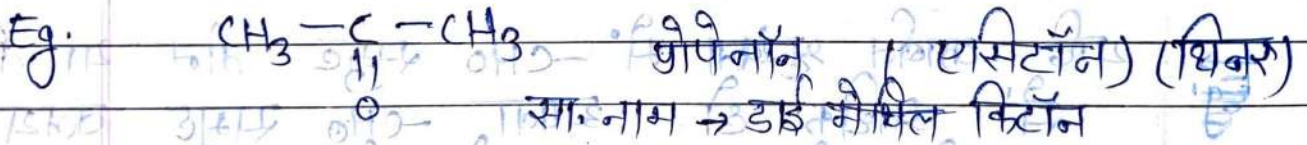 Eg. CH₃ - C - CH₃ प्रोपेनॉन (एसिटॉन) (थिनर)
||
O सा. नाम → डाई मेथिल किटॉन